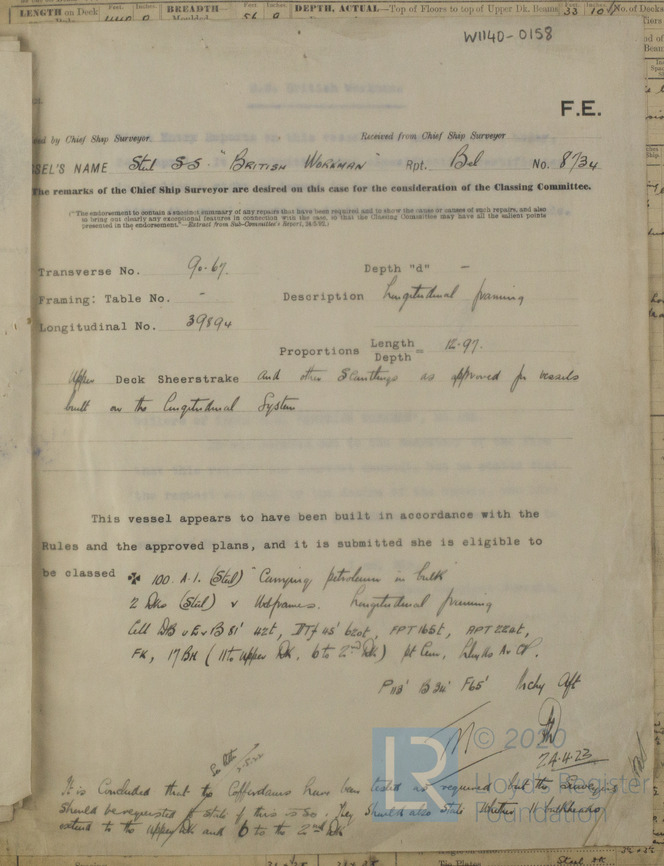 LENGTH on Deck Feet. Inches. BREADTH— Feet Inches. DEPTH, ACTUAL—Top of Floors to top of Upper Dk. Beams Feet Inches. No. of Decks
Moulded 33 10
W1140-0158
F.E.
by Chief Ship Surveyor Received from Chief Ship Surveyor
SEL'S NAME Steel S.S. "BRITISH WORKMAN" Rpt. Bel No. 8734
The remarks of the Chief Ship Surveyor are desired on this case for the consideration of the Classing Committee.
("The endorsement to contain a succinct summary of any repairs that have been required and to show the cause or causes of such repairs, and also
to bring out clearly any exceptional features in connection with the case, so that the Classing Committee may have all the salient points
presented in the endorsement."—Extract from Sub-Committee's Report,
Transverse No. 90.67. Depth "d" -
Framing: Table No. - Description Longitudinal framing
Longitudinal No. 39894
Proportions Length / Depth = 12.97.
Upper Deck Sheerstrake and other Scantlings as approved for vessels
built on the longitudinal System
This vessel appears to have been built in accordance with the
Rules and the approved plans, and it is submitted she is eligible to
be classed ✠ 100.A.1. (Steel) "Carrying petroleum in bulk"
2 Dks (Steel) & Webframes. Longitudinal framing
Cell DB 81' 42t, 45' 620t, FPT 165t, APT 224t,
FK, 17 BH (11 to Upper Dk, 6 to 2nd Dk) pt Cem, Lloyds A & CP.
P 113' B 34' F 65' Mchy Aft
24.4.23
It is concluded that the Cofferdams have been tested as required but the Surveyors
should be requested to state if this is so. They should also state whether 11 bulkheads
extend to the upper Dk and 6 to the 2nd Dk
© 2020
Lloyd's Register
Foundation
LR